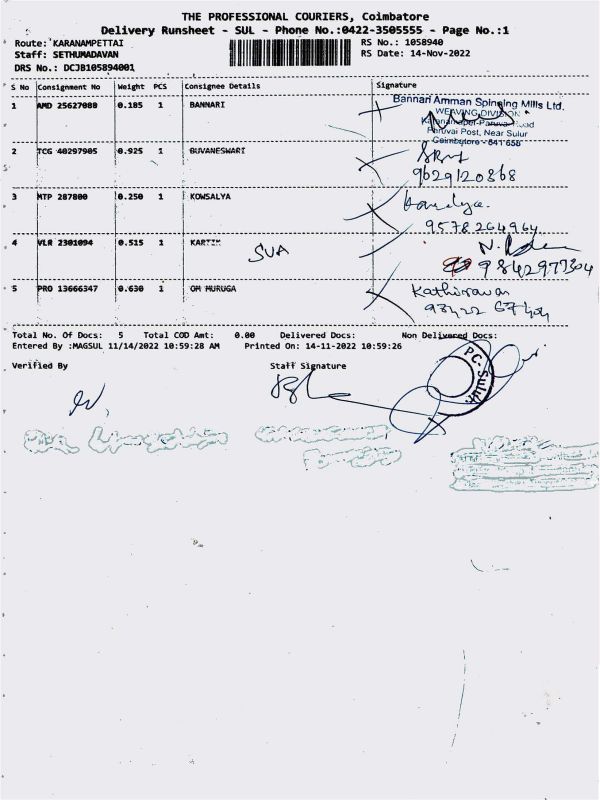 THE PROFESSIONAL COURIERS, Coimbatore
Delivery Runsheet - SUL - Phone No.:0422-3505555 - Page No.:1
Route: KARANAMPETTAI
RS No.: 1058940
Staff: SETHUMADAVAN
RS Date: 14-Nov-2022
DRS No.: DCJB105894001
S No Consignment No Weight PCS Consignee Details Signature
1 AMD 25627088 0.185 1 BANNARI
Bannari Amman Spinning Mills Ltd.
WEAVING DIVISION
Paruvai Post, Near Sulur
Coimbatore - 641 658
2 TCG 40297905 0.925 1 BUVANESWARI
9629120868
3 MTP 287800 0.250 1 KOWSALYA
9578264964
4 VLR 2301094 0.515 1 KARTIK SUA
9842977304
5 PRO 13666347 0.630 1 OM MURUGA
Kathiravan
Total No. Of Docs: 5 Total COD Amt: 0.00 Delivered Docs: Non Delivered Docs:
Entered By :MAGSUL 11/14/2022 10:59:28 AM Printed On: 14-11-2022 10:59:26
Verified By Staff Signature
PC. Sulur